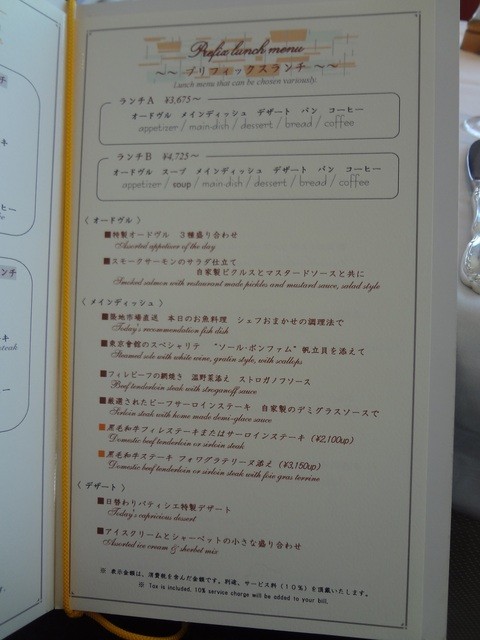 Prefix lunch menu
～～ プリフィックスランチ ～～
Lunch menu that can be chosen variously.
ランチA ¥3,675～
オードヴル メインディッシュ デザート パン コーヒー
appetizer / main-dish / dessert / bread / coffee
ランチB ¥4,725～
オードヴル スープ メインディッシュ デザート パン コーヒー
appetizer / soup / main-dish / dessert / bread / coffee
〈 オードヴル 〉
■特製オードヴル 3種盛り合わせ
Assorted appetizer of the day
■スモークサーモンのサラダ仕立て
自家製ピクルスとマスタードソースと共に
Smoked salmon with restaurant made pickles and mustard sauce, salad style
〈 メインディッシュ 〉
■築地市場直送 本日のお魚料理 シェフおまかせの調理法で
Today's recommendation fish dish
■東京會館のスペシャリテ “ソール・ボンファム” 帆立貝を添えて
Steamed sole with white wine, gratin style, with scallops
■フィレビーフの網焼き 温野菜添え ストロガノフソース
Beef tenderloin steak with stroganoff sauce
■厳選されたビーフサーロインステーキ 自家製のデミグラスソースで
Sirloin steak with home made demi-glace sauce
■黒毛和牛フィレステーキまたはサーロインステーキ (¥2,100up)
Domestic beef tenderloin or sirloin steak
■黒毛和牛ステーキ フォワグラテリーヌ添え (¥3,150up)
Domestic beef tenderloin or sirloin steak with foie gras terrine
〈 デザート 〉
■日替わりパティシエ特製デザート
Today's capricious dessert
■アイスクリームとシャーベットの小さな盛り合わせ
Assorted ice cream & sherbet mix
※ 表示金額は、消費税を含んだ金額です。別途、サービス料(10%)を頂戴いたします。
※ Tax is included, 10% service charge will be added to your bill.